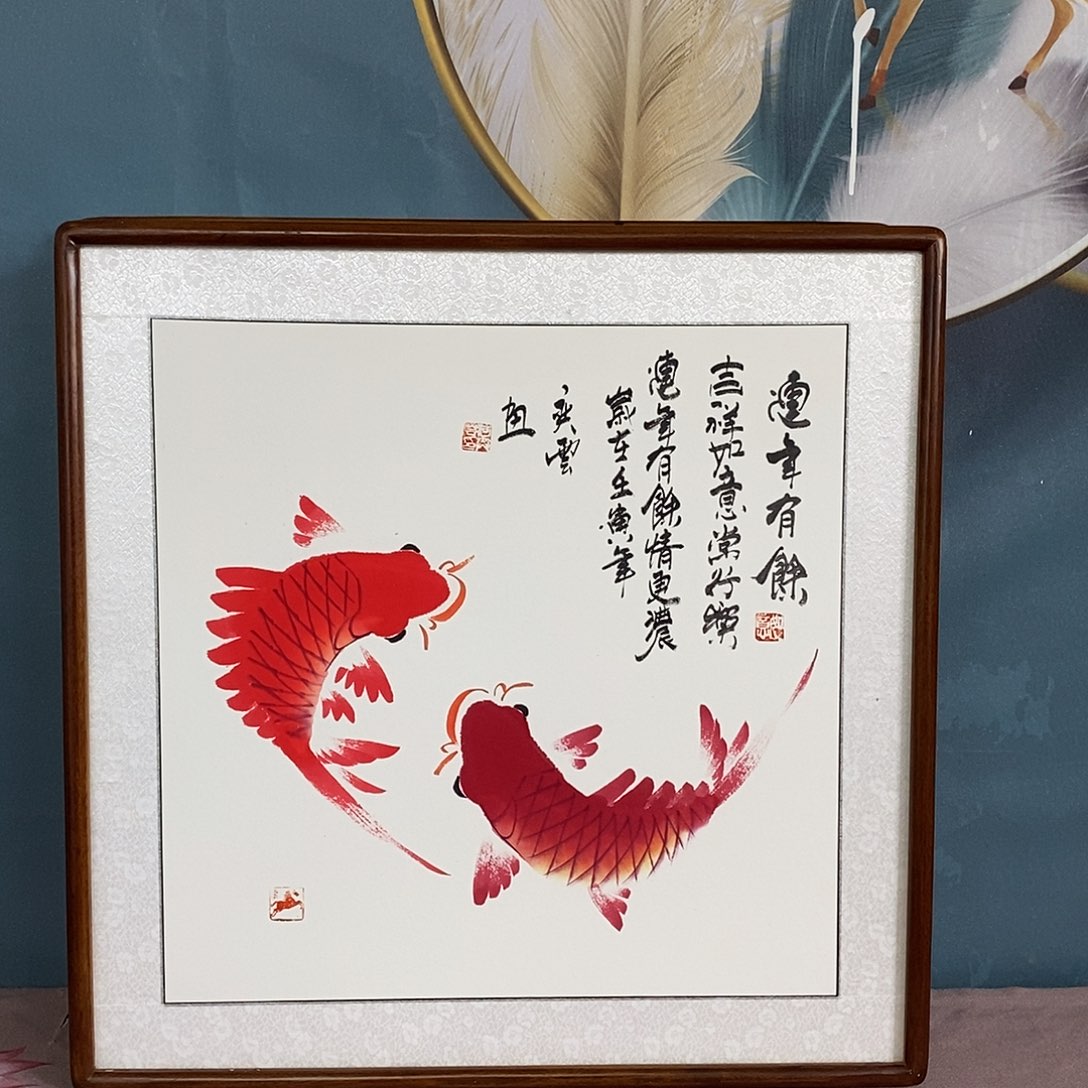 連年有餘
吉祥如意常行樂
連年有餘情更濃
歲在壬寅年
雲
画